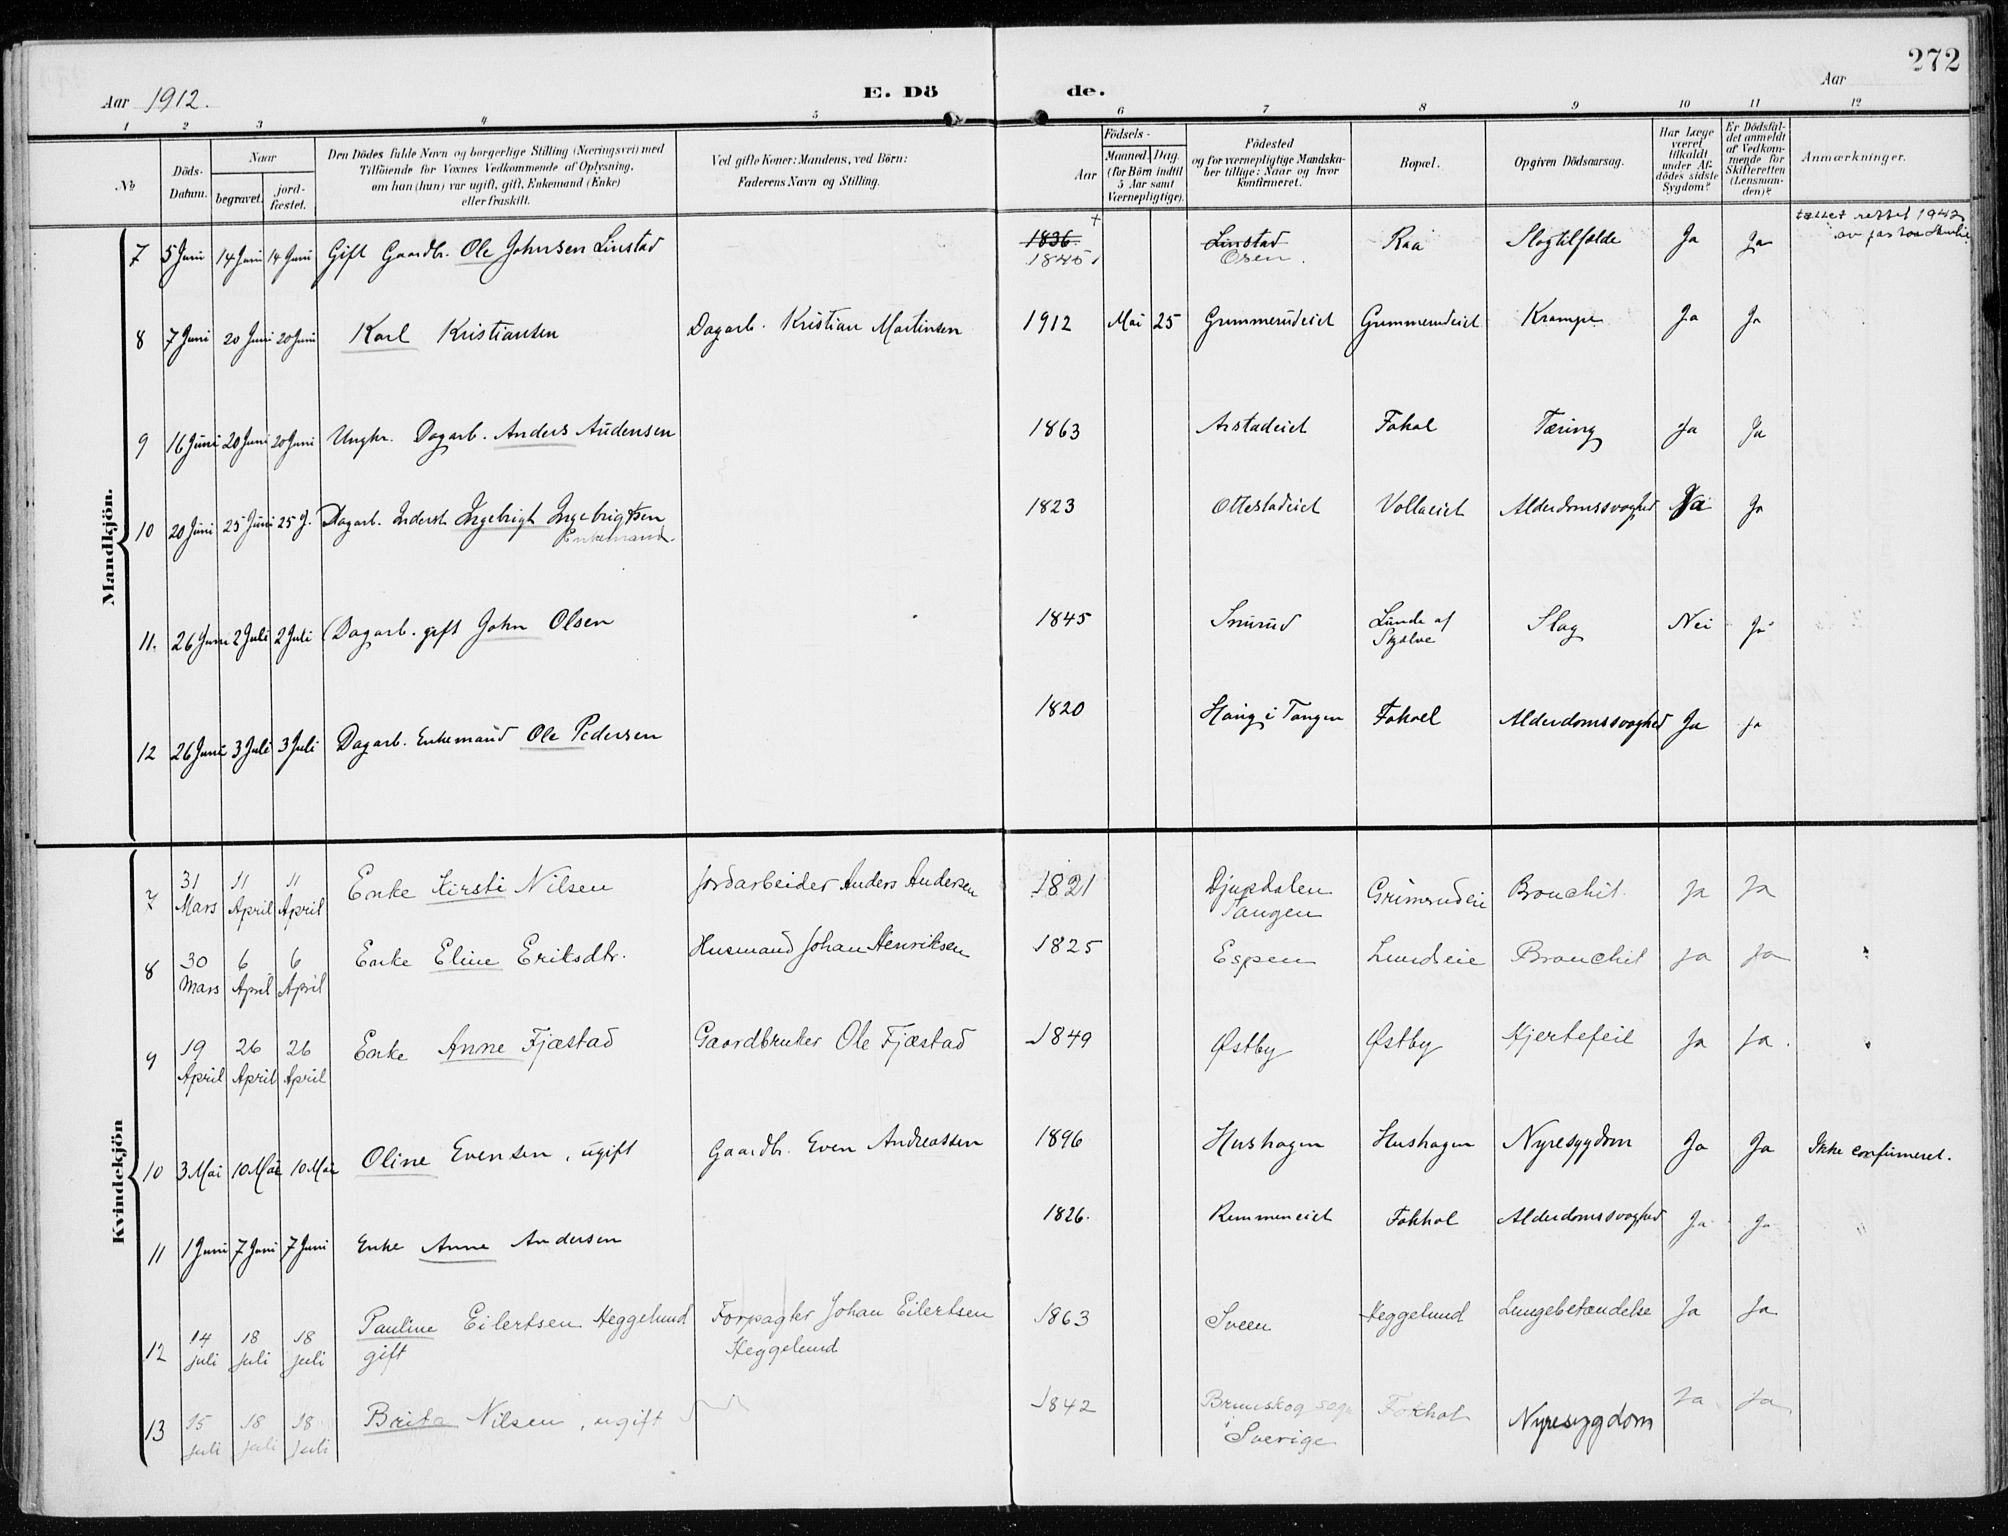 272
Aar 1912.
E. Dö de.
Aar
1 2 3 4 5 6 7 8 9 10 11 12
No
Döds-Datum.
Naar
begravet.
jord-fæstet.
Den Dödes fulde Navn og borgerlige Stilling (Næringsvei) med
Tilföiende for Voxnes Vedkommende af Oplysning,
om han (hun) var ugift, gift, Enkemand (Enke)
eller fraskilt.
Ved gifte Koner: Mandens, ved Börn:
Faderens Navn og Stilling.
Födsels-
Aar
Maaned. Dag.
(for Börn indtil
5 Aar samt
Værnepligtige).
Födested
og for værnepligtige Mandska-
ber tillige: Naar og hvor
konfirmeret.
Bopæl.
Opgiven Dödsaarsag.
Har Læge
været
tilkaldt
under Af-
dödes sidste
Sygdom?
Er Dödsfal-
det anmeldt
af Vedkom-
mende for
Skifteretten
(Lensman-
den)?
Anmærkninger.
Mandkjön.
7 5 Juni 14 Juni 14 Juni Gift Gaardbr. Ole Johnsen Linstad 1836. 1845 Linstad Osen. Raa Slagtilfælde Ja Ja rettet 1942 av
8 7 Juni 20 Juni 20 Juni Karl Kristiansen Dagarb. Kristian Martinsen 1912 Mai 25 Grummerudeiet Grummerudeiet Krampe Ja Ja
9 16 Juni 20 Juni 20 Juni Ungkr. Dagarb. Anders Audensen 1863 Arstadeiet Fokol Tæring Ja Ja
10 20 Juni 25 Juni 25 J. Dagarb. Inderst Ingebrigt Ingebrigtsen 1823 Ottestadeiet Vollaeiet Alderdomssvaghed Ja Ja
Enkemand.
11. 26 Juni 2 Juli 2 Juli Dagarb. gift John Olsen 1845 Snurud Lunde af Skjølve Slag Nei Ja
12 26 Juni 3 Juli 3 Juli Dagarb. Enkemand Ole Pedersen 1820 Haug i Tangen Fokoel Alderdomssvaghed Ja Ja
Kvindekjön
7 31 Mars 11 April 11 April Enke Kirsti Nilsen Jordarbeider Anders Andersen 1821 Djupdalen Tangen Grimerudeie Bronchit. Ja Ja
8 30 Mars 6 April 6 April Enke Eline Eriksdtr. Husmand Johan Henriksen 1825 Espen Lundseie Bronchit Ja Ja
9 19 April 26 April 26 April Enke Anne Fjæstad Gaardbruker Ole Fjæstad 1849 Østby Østby Hjertefeil Ja Ja.
10 3 Mai 10 Mai 10 Mai Oline Evensen, ugift Gaardbr. Even Andreassen 1896 Hushagen Hushagen Nyresygdom Ja Ja Ikke confirmeret.
11 1 Juni 7 Juni 7 Juni Enke Anne Andersen 1826. Remmeneiet Fokhol Alderdomssvaghed Ja Ja
12 14 juli 18 juli 18 juli Pauline Eilertsen Heggelund Forpagter Johan Eilertsen 1863 Sveen Heggelund Lungebetændelse Ja Ja
gift Heggelund
13 15 juli 18 juli 18 juli Brita Nilsen, ugift 1842 Brunskog sogn i Sverige Fokhol Nyresygdom Ja Ja